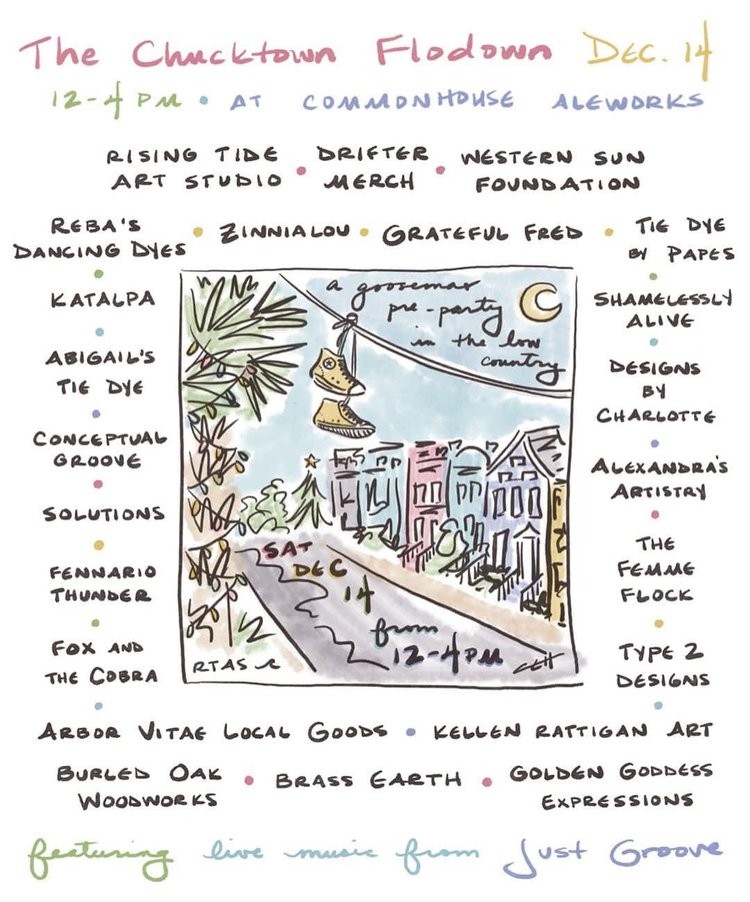 The Chucktown Flodown DEC. 14
12-4 PM • AT COMMONHOUSE ALEWORKS
RISING TIDE ART STUDIO • DRIFTER MERCH • WESTERN SUN FOUNDATION
REBA'S DANCING DYES • ZINNIALOU • GRATEFUL FRED • TIE DYE BY PAPES
KATALPA
ABIGAIL'S
TIE DYE
CONCEPTUAL
GROOVE
SOLUTIONS
FENNARIO
THUNDER
FOX AND
THE COBRA
a goosemas
pre-party
in the low
country
SAT
DEC
14
from
12-4 PM
RTAS
CEH
SHAMELESSLY
ALIVE
DESIGNS
BY
CHARLOTTE
ALEXANDRA'S
ARTISTRY
THE
FEMME
FLOCK
TYPE 2
DESIGNS
ARBOR VITAE LOCAL GOODS • KELLEN RATTIGAN ART
BURLED OAK WOODWORKS • BRASS EARTH • GOLDEN GODDESS EXPRESSIONS
featuring live music from Just Groove